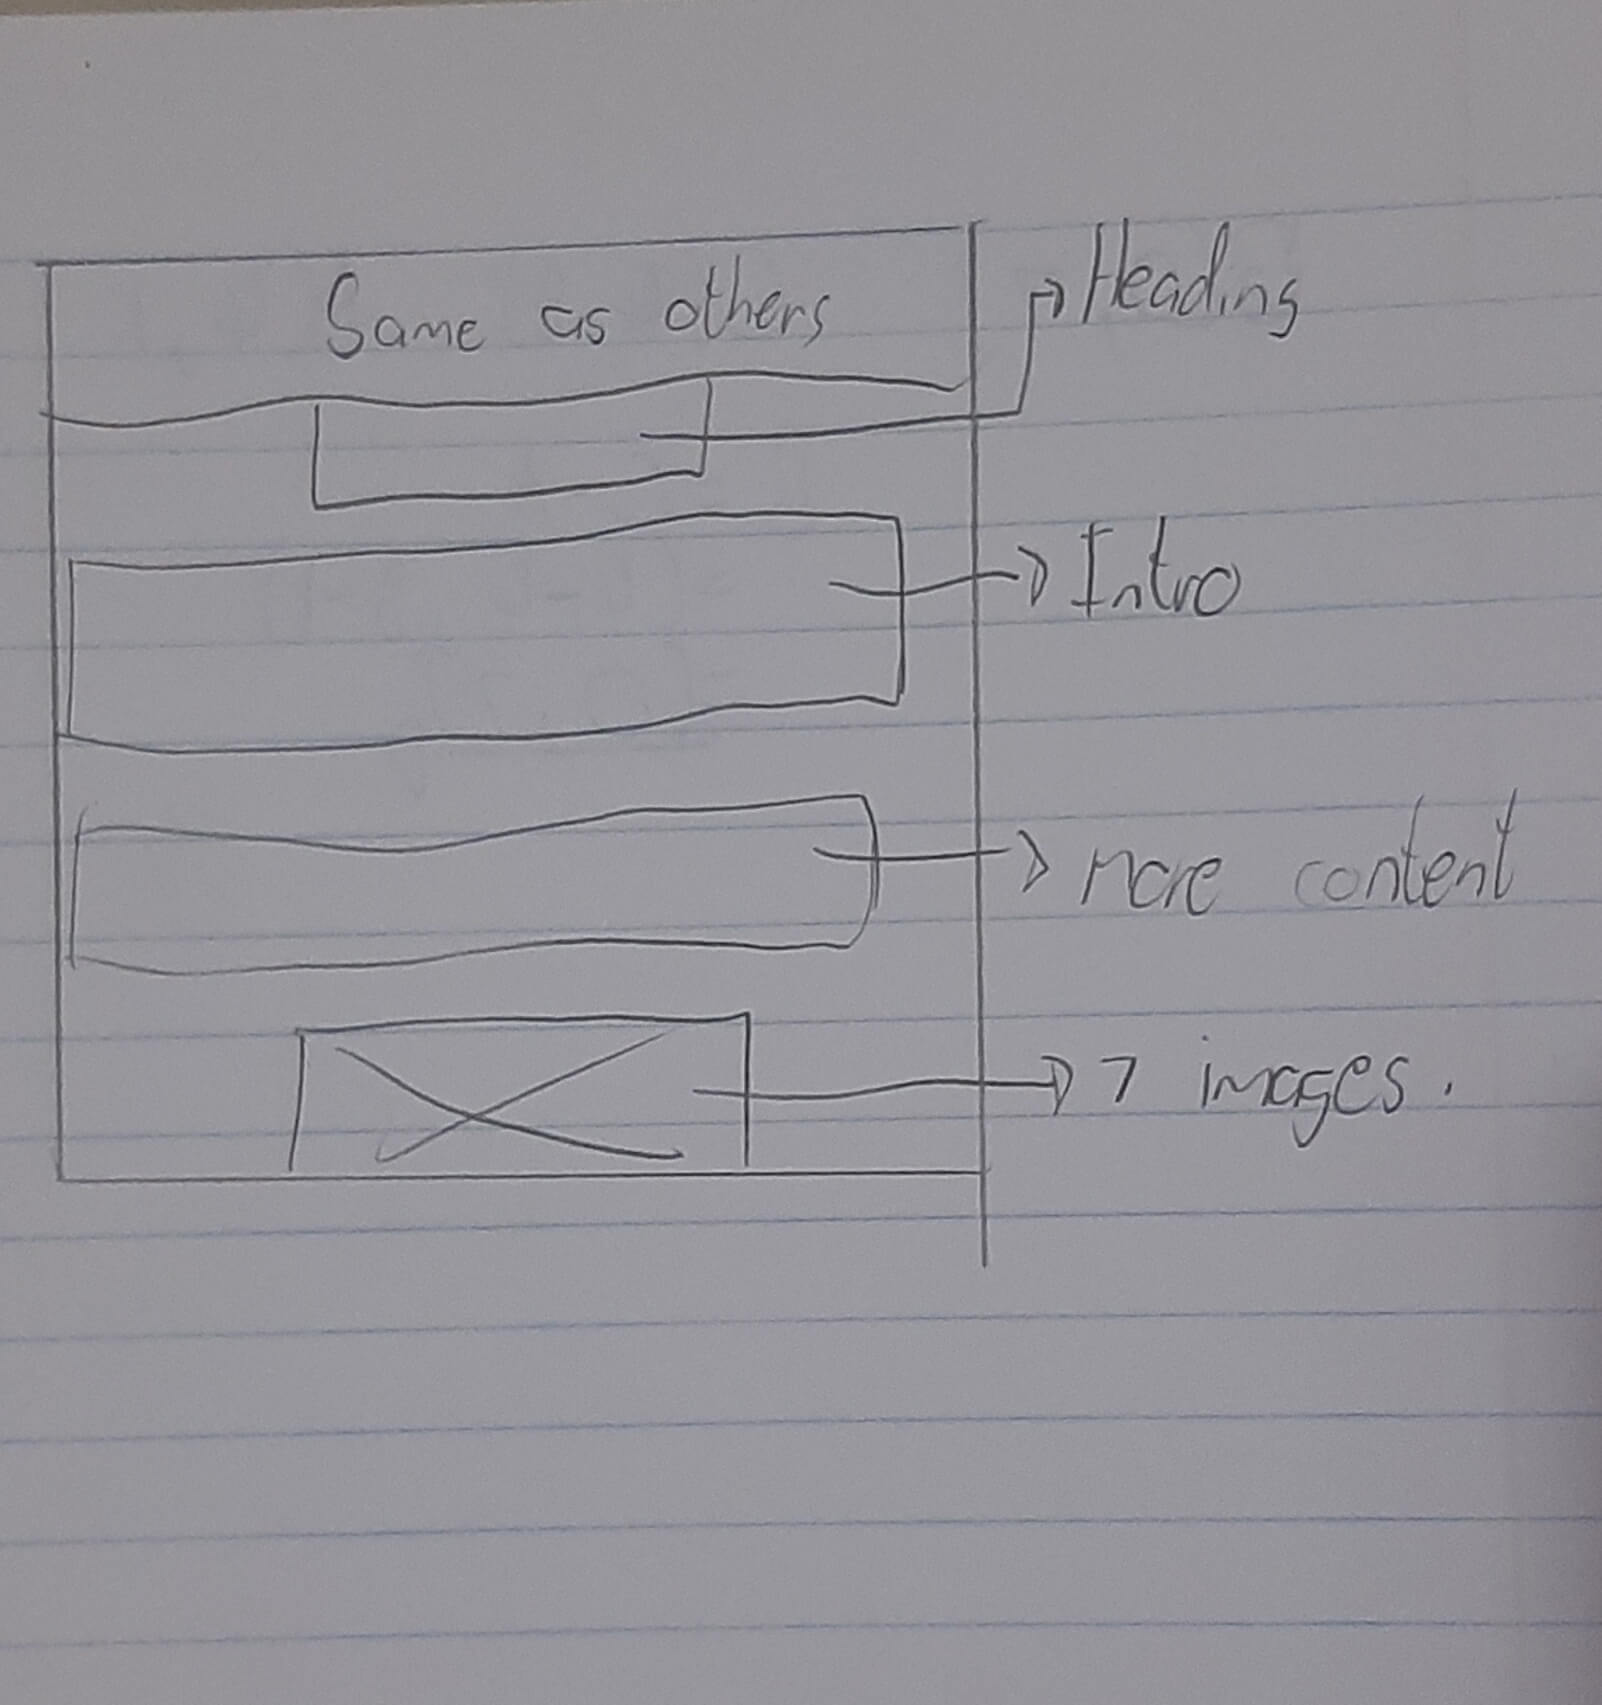 Same as others
Heading
Intro
more content
7 images.